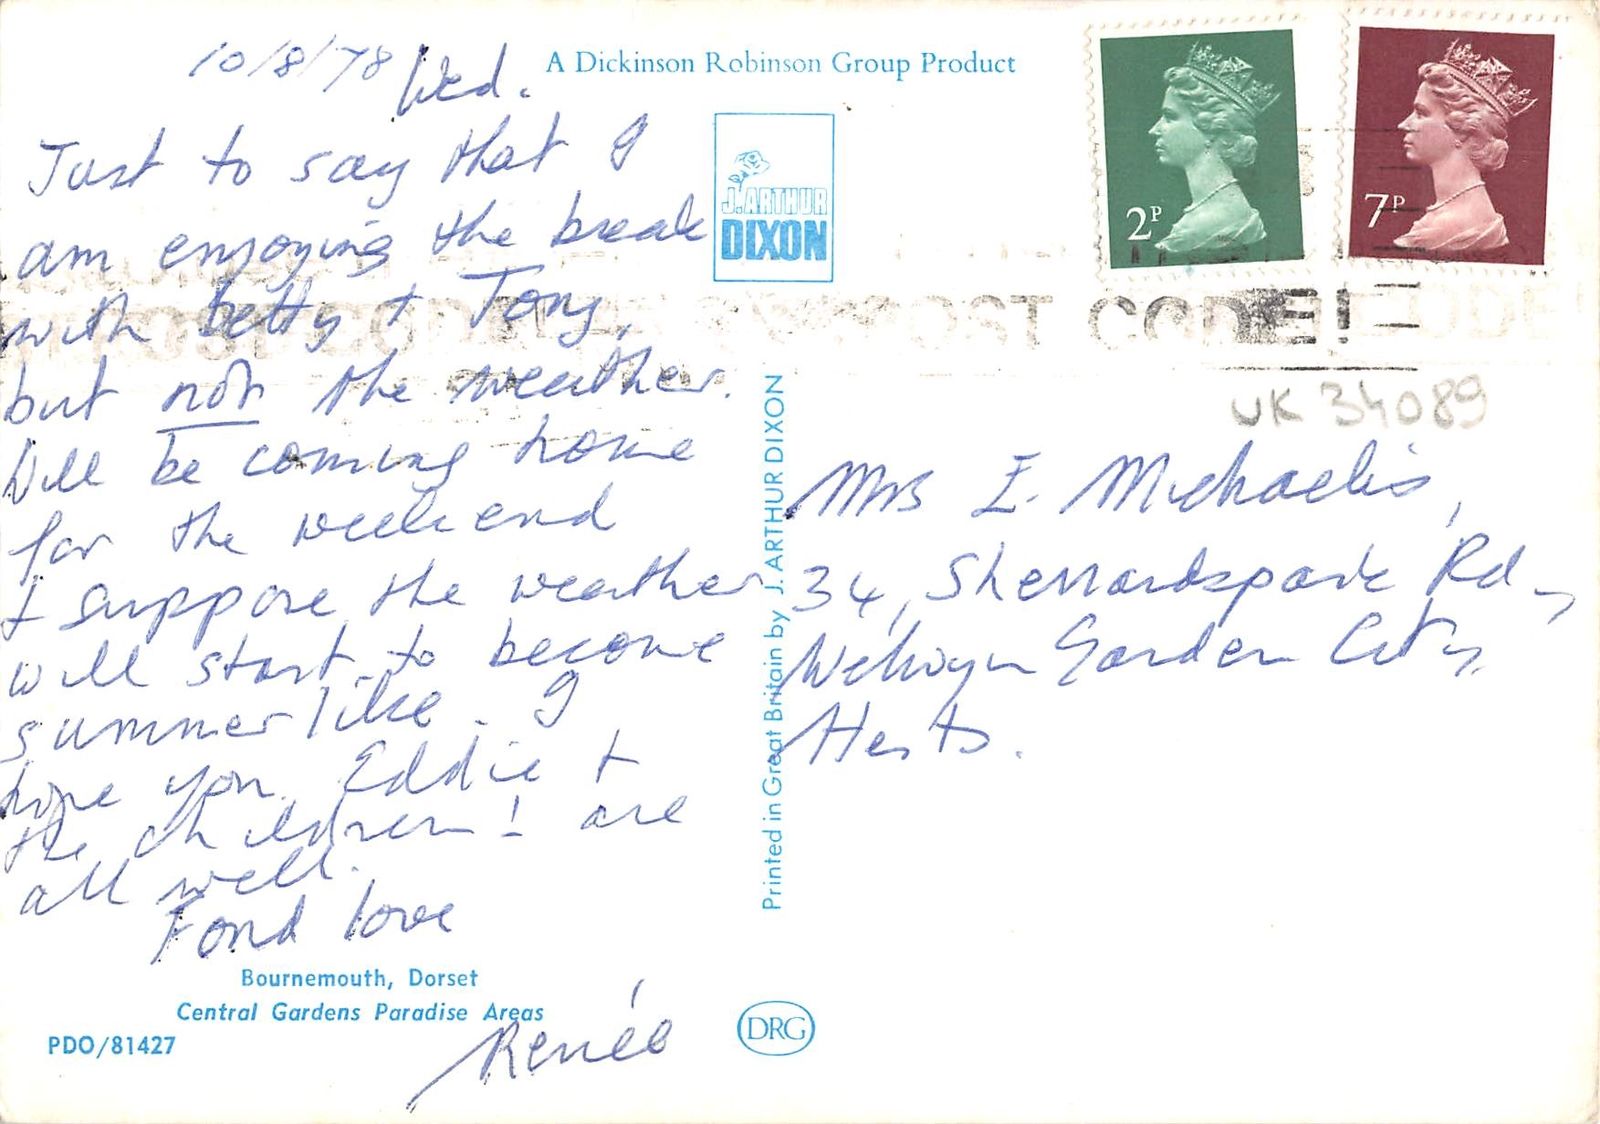 10/8/78 Wed.
Just to say that I
am enjoying the break
with betty + Tony,
but not the weather.
Will be coming home
for the weekend
I suppose the weather
will start to become
summerlike. I
hope you Eddie +
the children! are
all well.
Fond love
Renée
Bournemouth, Dorset
Central Gardens Paradise Areas
PDO/81427
A Dickinson Robinson Group Product
J.ARTHUR
DIXON
Printed in Great Britain by J. ARTHUR DIXON
DRG
2P
7P
POST CODE!
UK 34089
Mrs E. Michaelis,
34, Sherrardspark Rd,
Welwyn Garden City,
Herts.